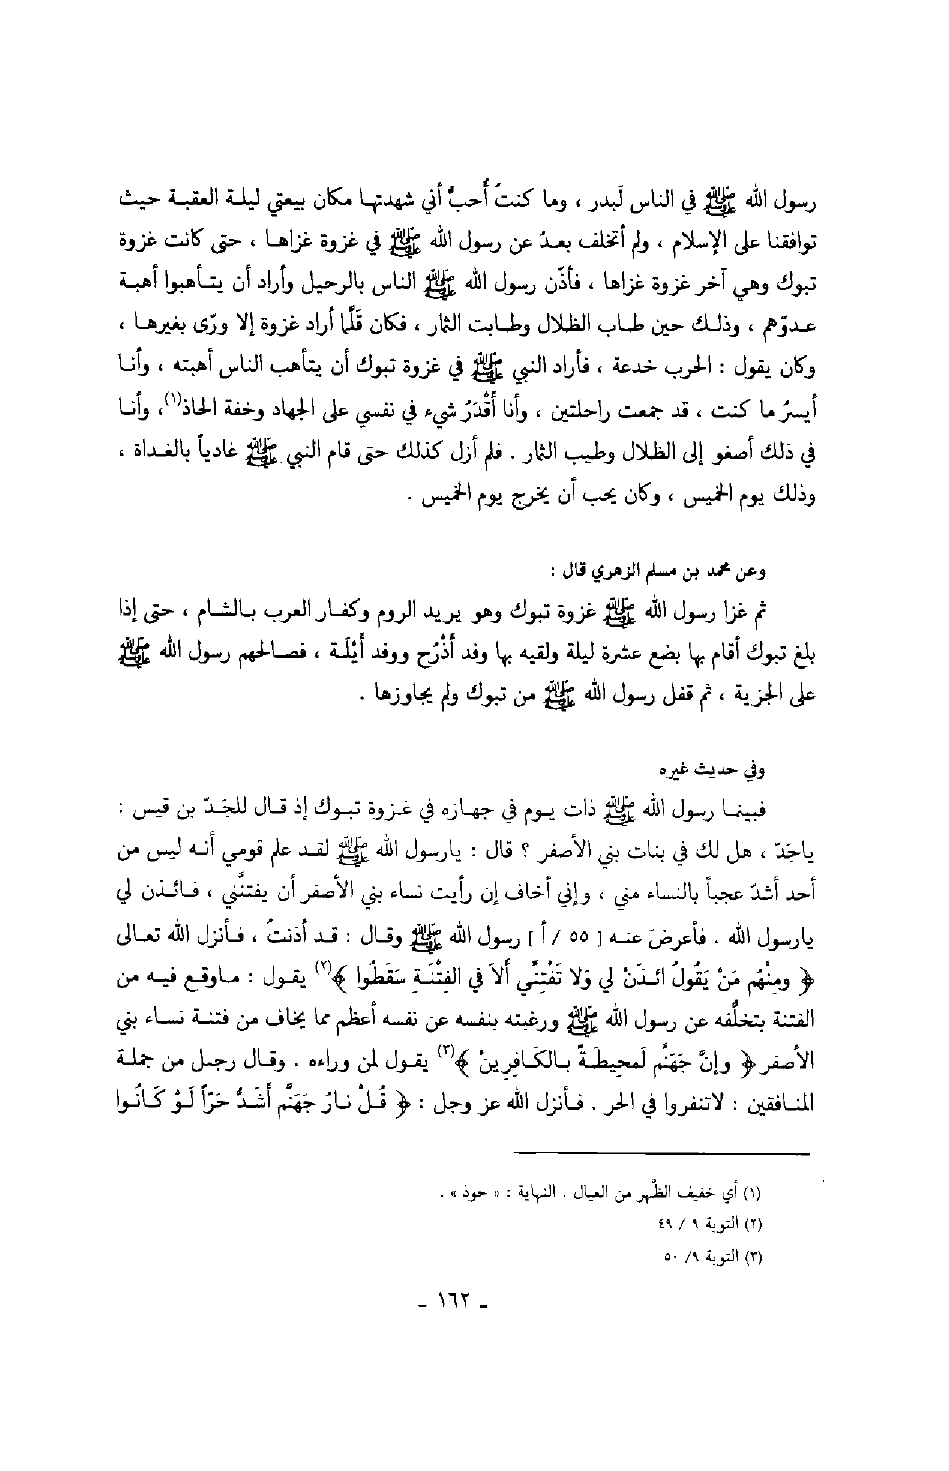 رسول الله ﷺ في الناس لَبدر ، وما كنتُ أُحبُّ أني شهدتها مكان بيعتي ليلة العقبة حيث
توافقنا على الإسلام ، ولم أتخلف بعدُ عن رسول الله ﷺ في غزوة غزاها ، حتى كانت غزوة
تبوك وهي آخر غزوة غزاها ، فأذّن رسول الله ﷺ الناس بالرحيل وأراد أن يتأهبوا أهبة
عدوّهم ، وذلك حين طاب الظلال وطابت الثمار ، فكان قَلَّما أراد غزوة إلا ورّى بغيرها ،
وكان يقول : الحرب خدعة ، فأراد النبي ﷺ في غزوة تبوك أن يتأهب الناس أهبته ، وأنا
أيسرُ ما كنت ، قد جمعت راحلتين ، وأنا أَقْدَرُ شيء في نفسي على الجهاد وخفة الحاذ(١)، وأنا
في ذلك أصغو إلى الظلال وطيب الثمار . فلم أزل كذلك حتى قام النبي ﷺ غادياً بالغداة ،
وذلك يوم الخميس ، وكان يحب أن يخرج يوم الخميس .
وعن محمد بن مسلم الزهري قال :
ثم غزا رسول الله ﷺ غزوة تبوك وهو يريد الروم وكفار العرب بالشام ، حتى إذا
بلغ تبوك أقام بها بضع عشرة ليلة ولقيه بها وفد أَذْرُح ووفد أَيْلَة ، فصالحهم رسول الله ﷺ
على الجزية ، ثم قفل رسول الله ﷺ من تبوك ولم يجاوزها .
وفي حديث غيره
فبينما رسول الله ﷺ ذات يوم في جهازه في غزوة تبوك إذ قال للجَدّ بن قيس :
ياجَدّ ، هل لك في بنات بني الأصفر ؟ قال : يارسول الله ﷺ لقد علم قومي أنه ليس من
أحد أشدّ عجباً بالنساء مني ، وإني أخاف إن رأيت نساء بني الأصفر أن يفتنَّني ، فائذن لي
يارسول الله . فأعرضَ عنه [ ٥٥ / أ ] رسول الله ﷺ وقال : قد أذنتُ ، فأنزل الله تعالى
﴿ ومِنْهُم مَنْ يَقُولُ ائذَنْ لي وَلا تَفْتِنِّي أَلاَ في الفِتْنَةِ سَقَطُوا ﴾(٢) يقول : ماوقع فيه من
الفتنة بتخلُّفه عن رسول الله ﷺ ورغبته بنفسه عن نفسه أعظم مما يخاف من فتنة نساء بني
الأصفر ﴿ وإنَّ جَهَنَّم لَمحِيطةٌ بالكَافِرِينْ ﴾(٣) يقول لمن وراءه . وقال رجل من جملة
المنافقين : لاتنفروا في الحر . فأنزل الله عز وجل : ﴿ قُلْ نارُ جَهَنَّم أشَدُّ حَرّاً لَوْ كَانُوا
(١) أي خفيف الظَّهر من العيال . النهاية : « حوذ » .
(٢) التوبة ٩ / ٤٩
(٣) التوبة ٩/ ٥٠
- ١٦٢ -